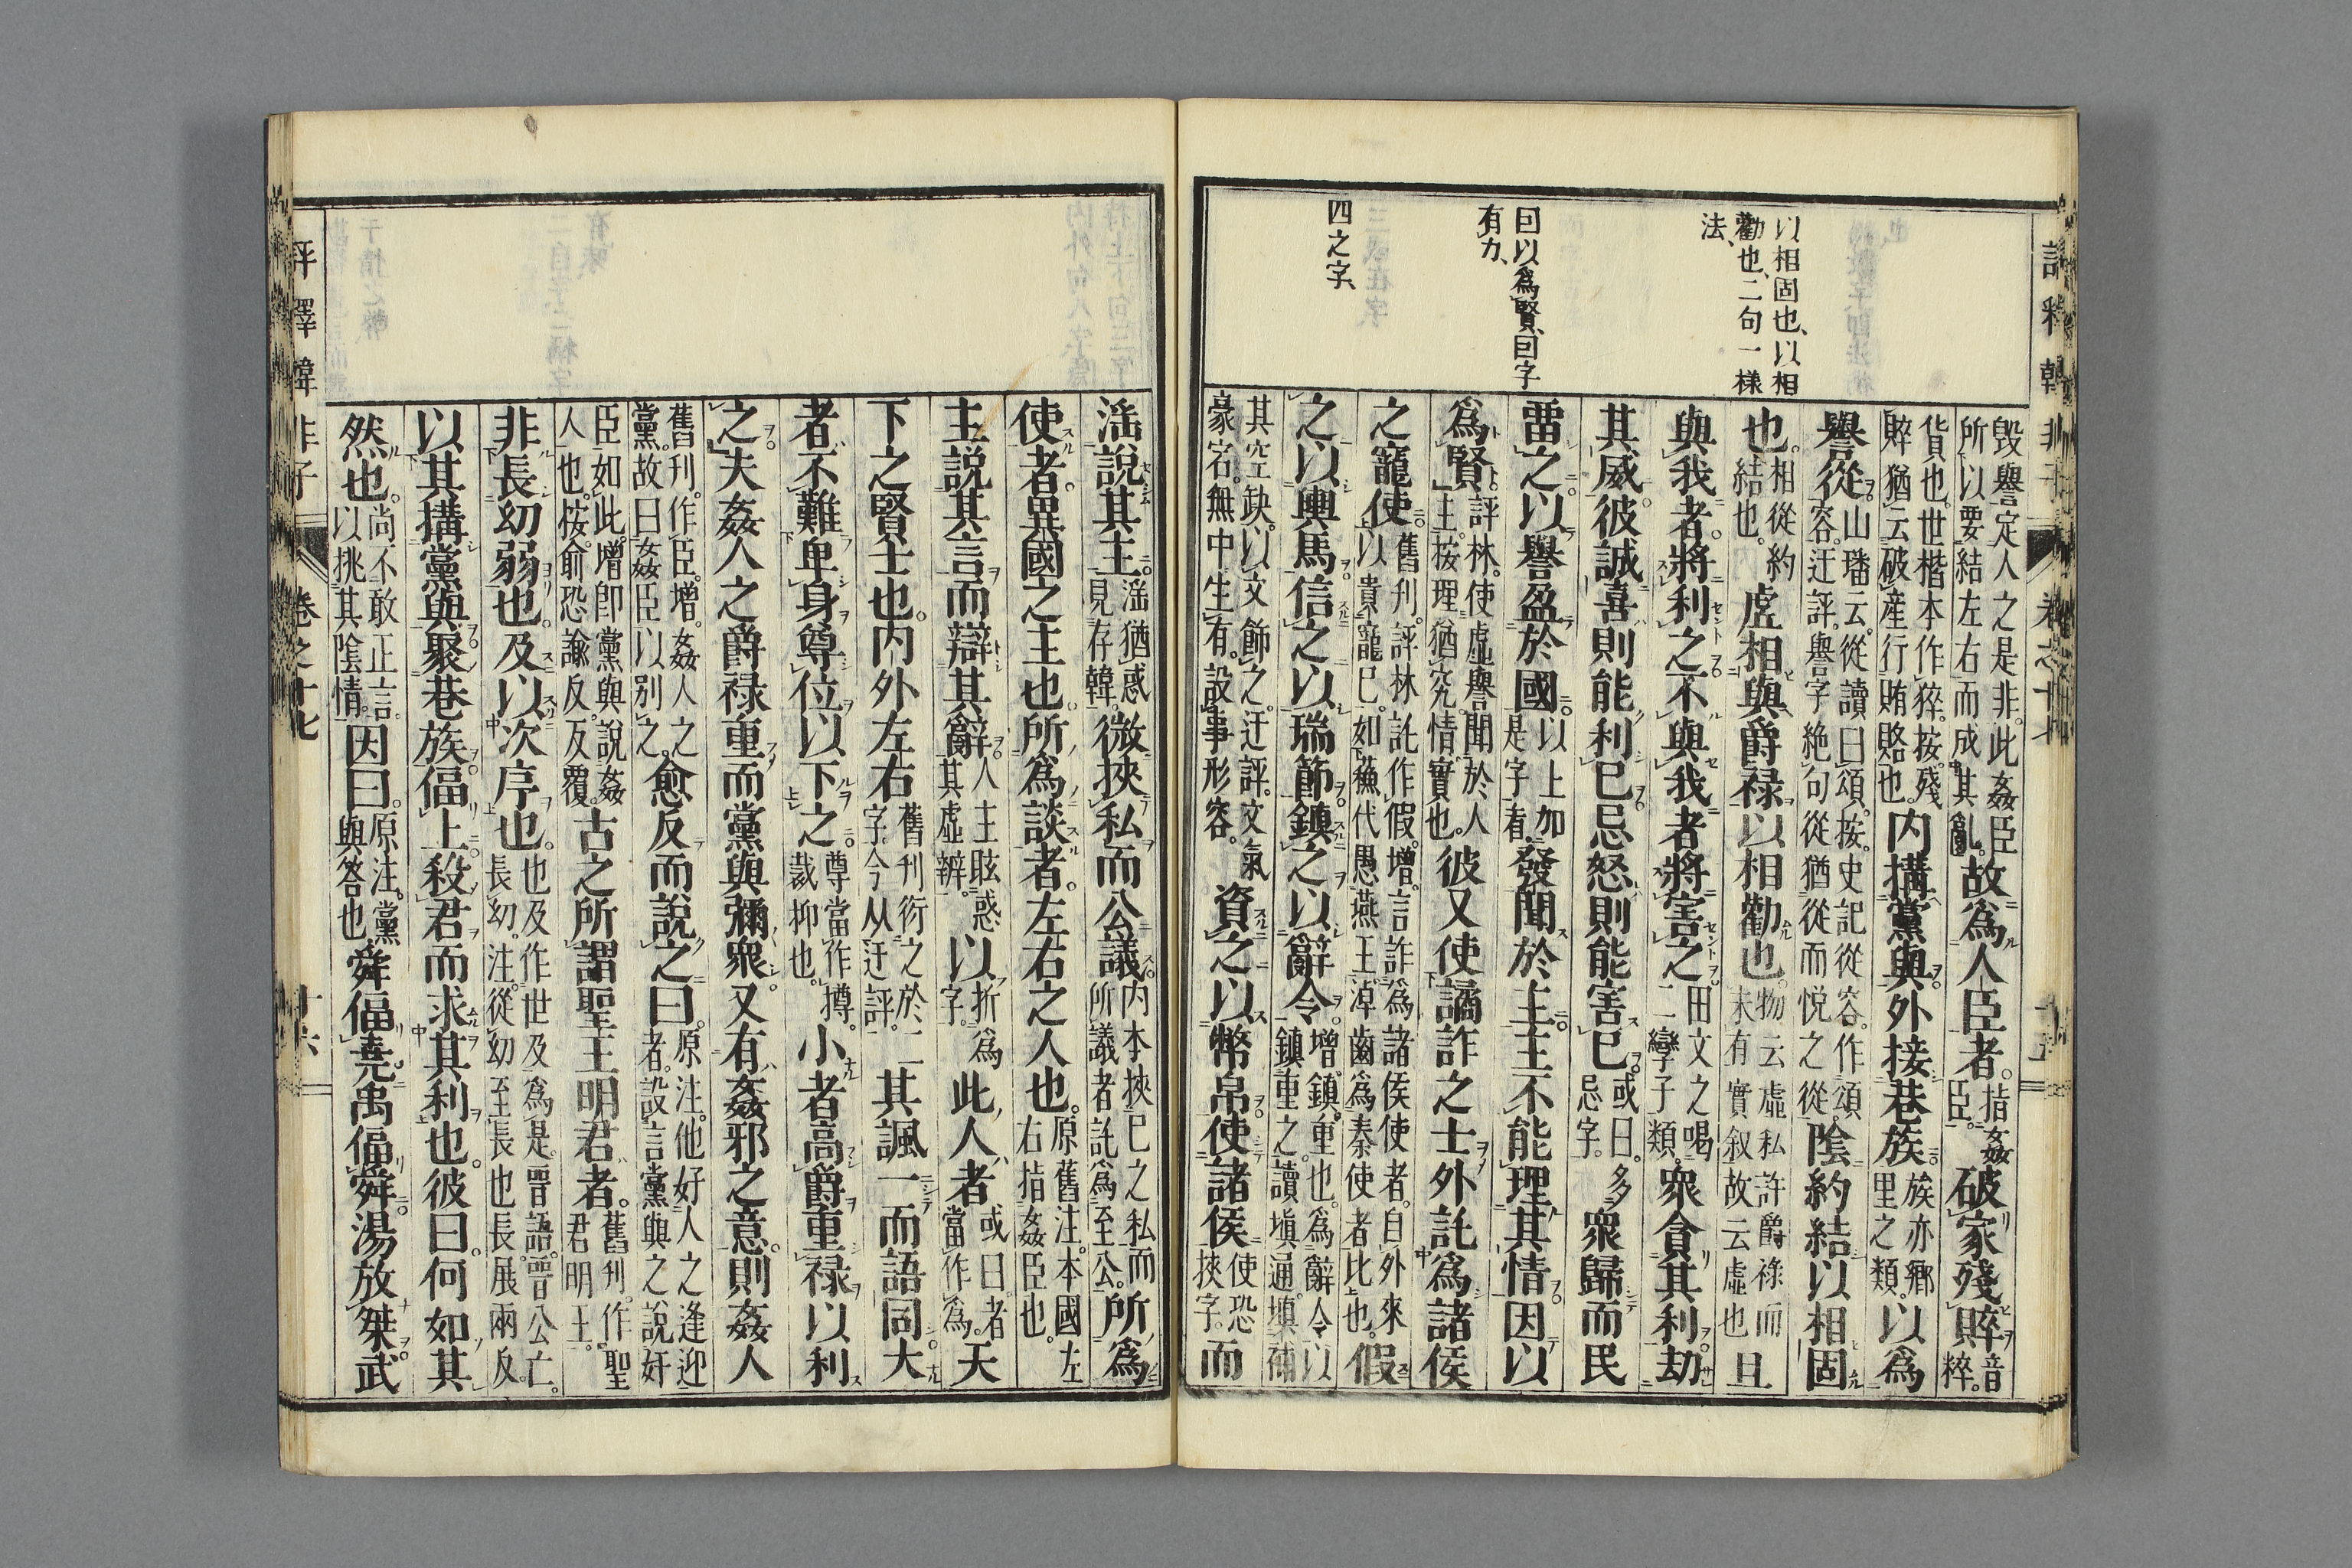 以相固也、以相
勸也、二句一樣
法、
因以爲賢、因字
有力、
四之字、
毀譽定人之是非。此姦臣所以要結左右而成其亂。故爲人臣者。指姦臣。破家殘賥音粹。
貨也。世楷本作猝。按殘賥猶云破產行賄賂也。内搆黨與外接巷族。族亦鄉里之類。以爲
譽從。山璠云。從讀曰頌。按。史記從容。作頌容。迂評。譽字絶句從猶從而悦之從。陰約結以相固
也。相從約結也。虛相與爵祿以相勸也。物云虛私許爵祿而未有實叙故云虛也且
與我者。將利之不與我者將害之田文之喝二孿子類。衆貪其利劫
其威。彼誠喜則能利己忌怒則能害己。或曰。多忌字。衆歸而民
畱之以譽盈於國。以上加是字者。發聞於主主不能理其情因以
爲賢。評林。使虛譽聞於人主。按理猶究情實也。彼又使譎詐之士外託爲諸侯
之寵使。舊刊。評林託作假。增。言詐爲諸侯使者。自外來以貴寵己。如蘇代愚燕王淖齒爲秦使者比也。假
之以輿馬信之以瑞節鎮之以辭令。增。鎮。重也。爲辭令以鎮重之。讀塡通。塡補
其空缺。以文飾之。迂評。文氣豪宕。無中生有。設事形容。資之以幣帛使諸侯使恐挾字。而
滛說其主。滛猶惑見存韓。微挾私而公議。内本挾己之私而所議者託爲至公。所爲
使者。異國之主也所爲談者。左右之人也。原舊注。本國左右指姦臣也。
主說其言而辯其辭。人主眩惑其虛辨。以折爲字。此人者或曰。者當作爲。天
下之賢士也。内外左右舊刊衍之於二字。今从迂評。其諷一而語同大
者不難卑身尊位以下之。尊當作撙。裁抑也。小者高爵重祿以利
之。夫姦人之爵祿重而黨與彌衆。又有姦邪之意。則姦人
舊刊。作臣。增。姦人之黨。故曰姦臣以別之。愈反而說之曰。原注。他好人之逢迎者。設言黨與之說奸
臣如此。增即黨與說姦人也。按。俞恐諭反。反覆。古之所謂聖王明君者。舊刊。作聖君明王。
非長幼弱也。及以次序也。也及作世及爲是。晋語。晋公亡。長幼。注。從幼至長也長展兩反。
以其搆黨與聚巷族偪上殺君而求其利也。彼曰。何如其
然也。尚不敢正言。以挑其陰情。因曰。原注。黨與答也舜偪堯禹偪舜。湯放桀武